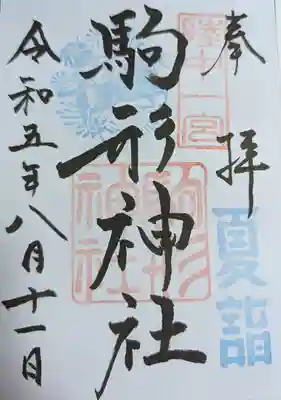 奉拝
陸中一宮
夏詣
駒形神社
駒形神社
令和五年八月十一日